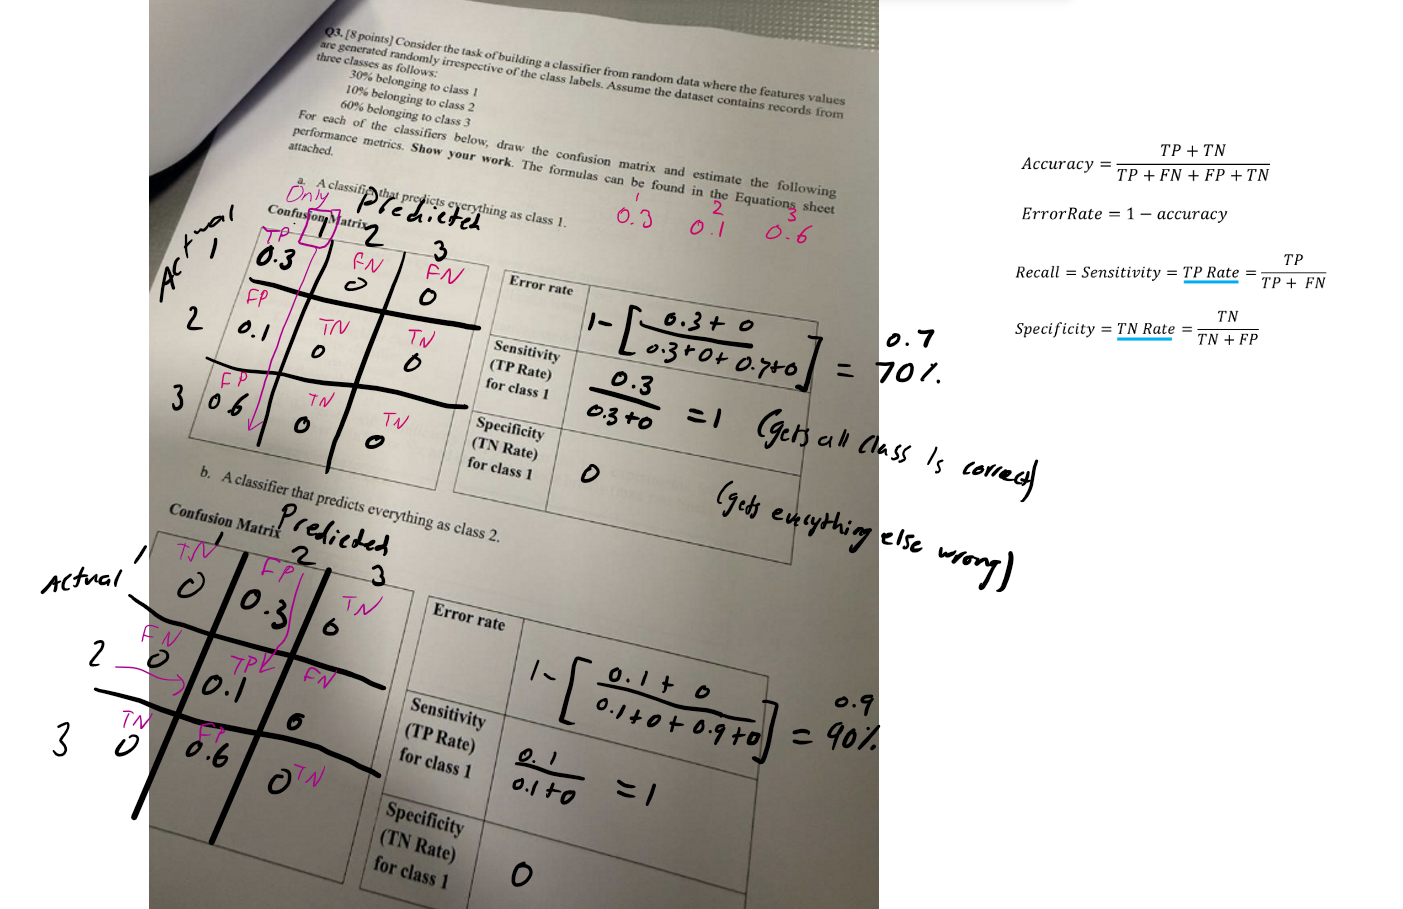 Q3. [8 points] Consider the task of building a classifier from random data where the features values
are generated randomly irrespective of the class labels. Assume the dataset contains records from
three classes as follows:
30% belonging to class 1
10% belonging to class 2
60% belonging to class 3
For each of the classifiers below, draw the confusion matrix and estimate the following
performance metrics. Show your work. The formulas can be found in the Equations sheet
attached.
a. A classifier that predicts everything as class 1.
1 2 3
0.3 0.1 0.6
Only
Confusion Matrix
Predicted
Actual
1 2 3
TP FN FN
1 0.3 0 0
FP TN TN
2 0.1 0 0
FP TN TN
3 0.6 0 0
Error rate
1 - [ 0.3 + 0 / 0.3 + 0 + 0.7 + 0 ] = 0.7 70%.
Sensitivity
(TP Rate)
for class 1
0.3 / 0.3 + 0 = 1 (gets all class 1s correct)
Specificity
(TN Rate)
for class 1
0 (gets everything else wrong)
b. A classifier that predicts everything as class 2.
Confusion Matrix
Predicted
Actual
1 2 3
TN FP TN
1 0 0.3 0
FN TP FN
2 0 0.1 0
TN FP TN
3 0 0.6 0
Error rate
1 - [ 0.1 + 0 / 0.1 + 0 + 0.9 + 0 ] = 0.9 90%
Sensitivity
(TP Rate)
for class 1
0.1 / 0.1 + 0 = 1
Specificity
(TN Rate)
for class 1
0
Accuracy = TP + TN / TP + FN + FP + TN
ErrorRate = 1 − accuracy
Recall = Sensitivity = TP Rate = TP / TP + FN
Specificity = TN Rate = TN / TN + FP